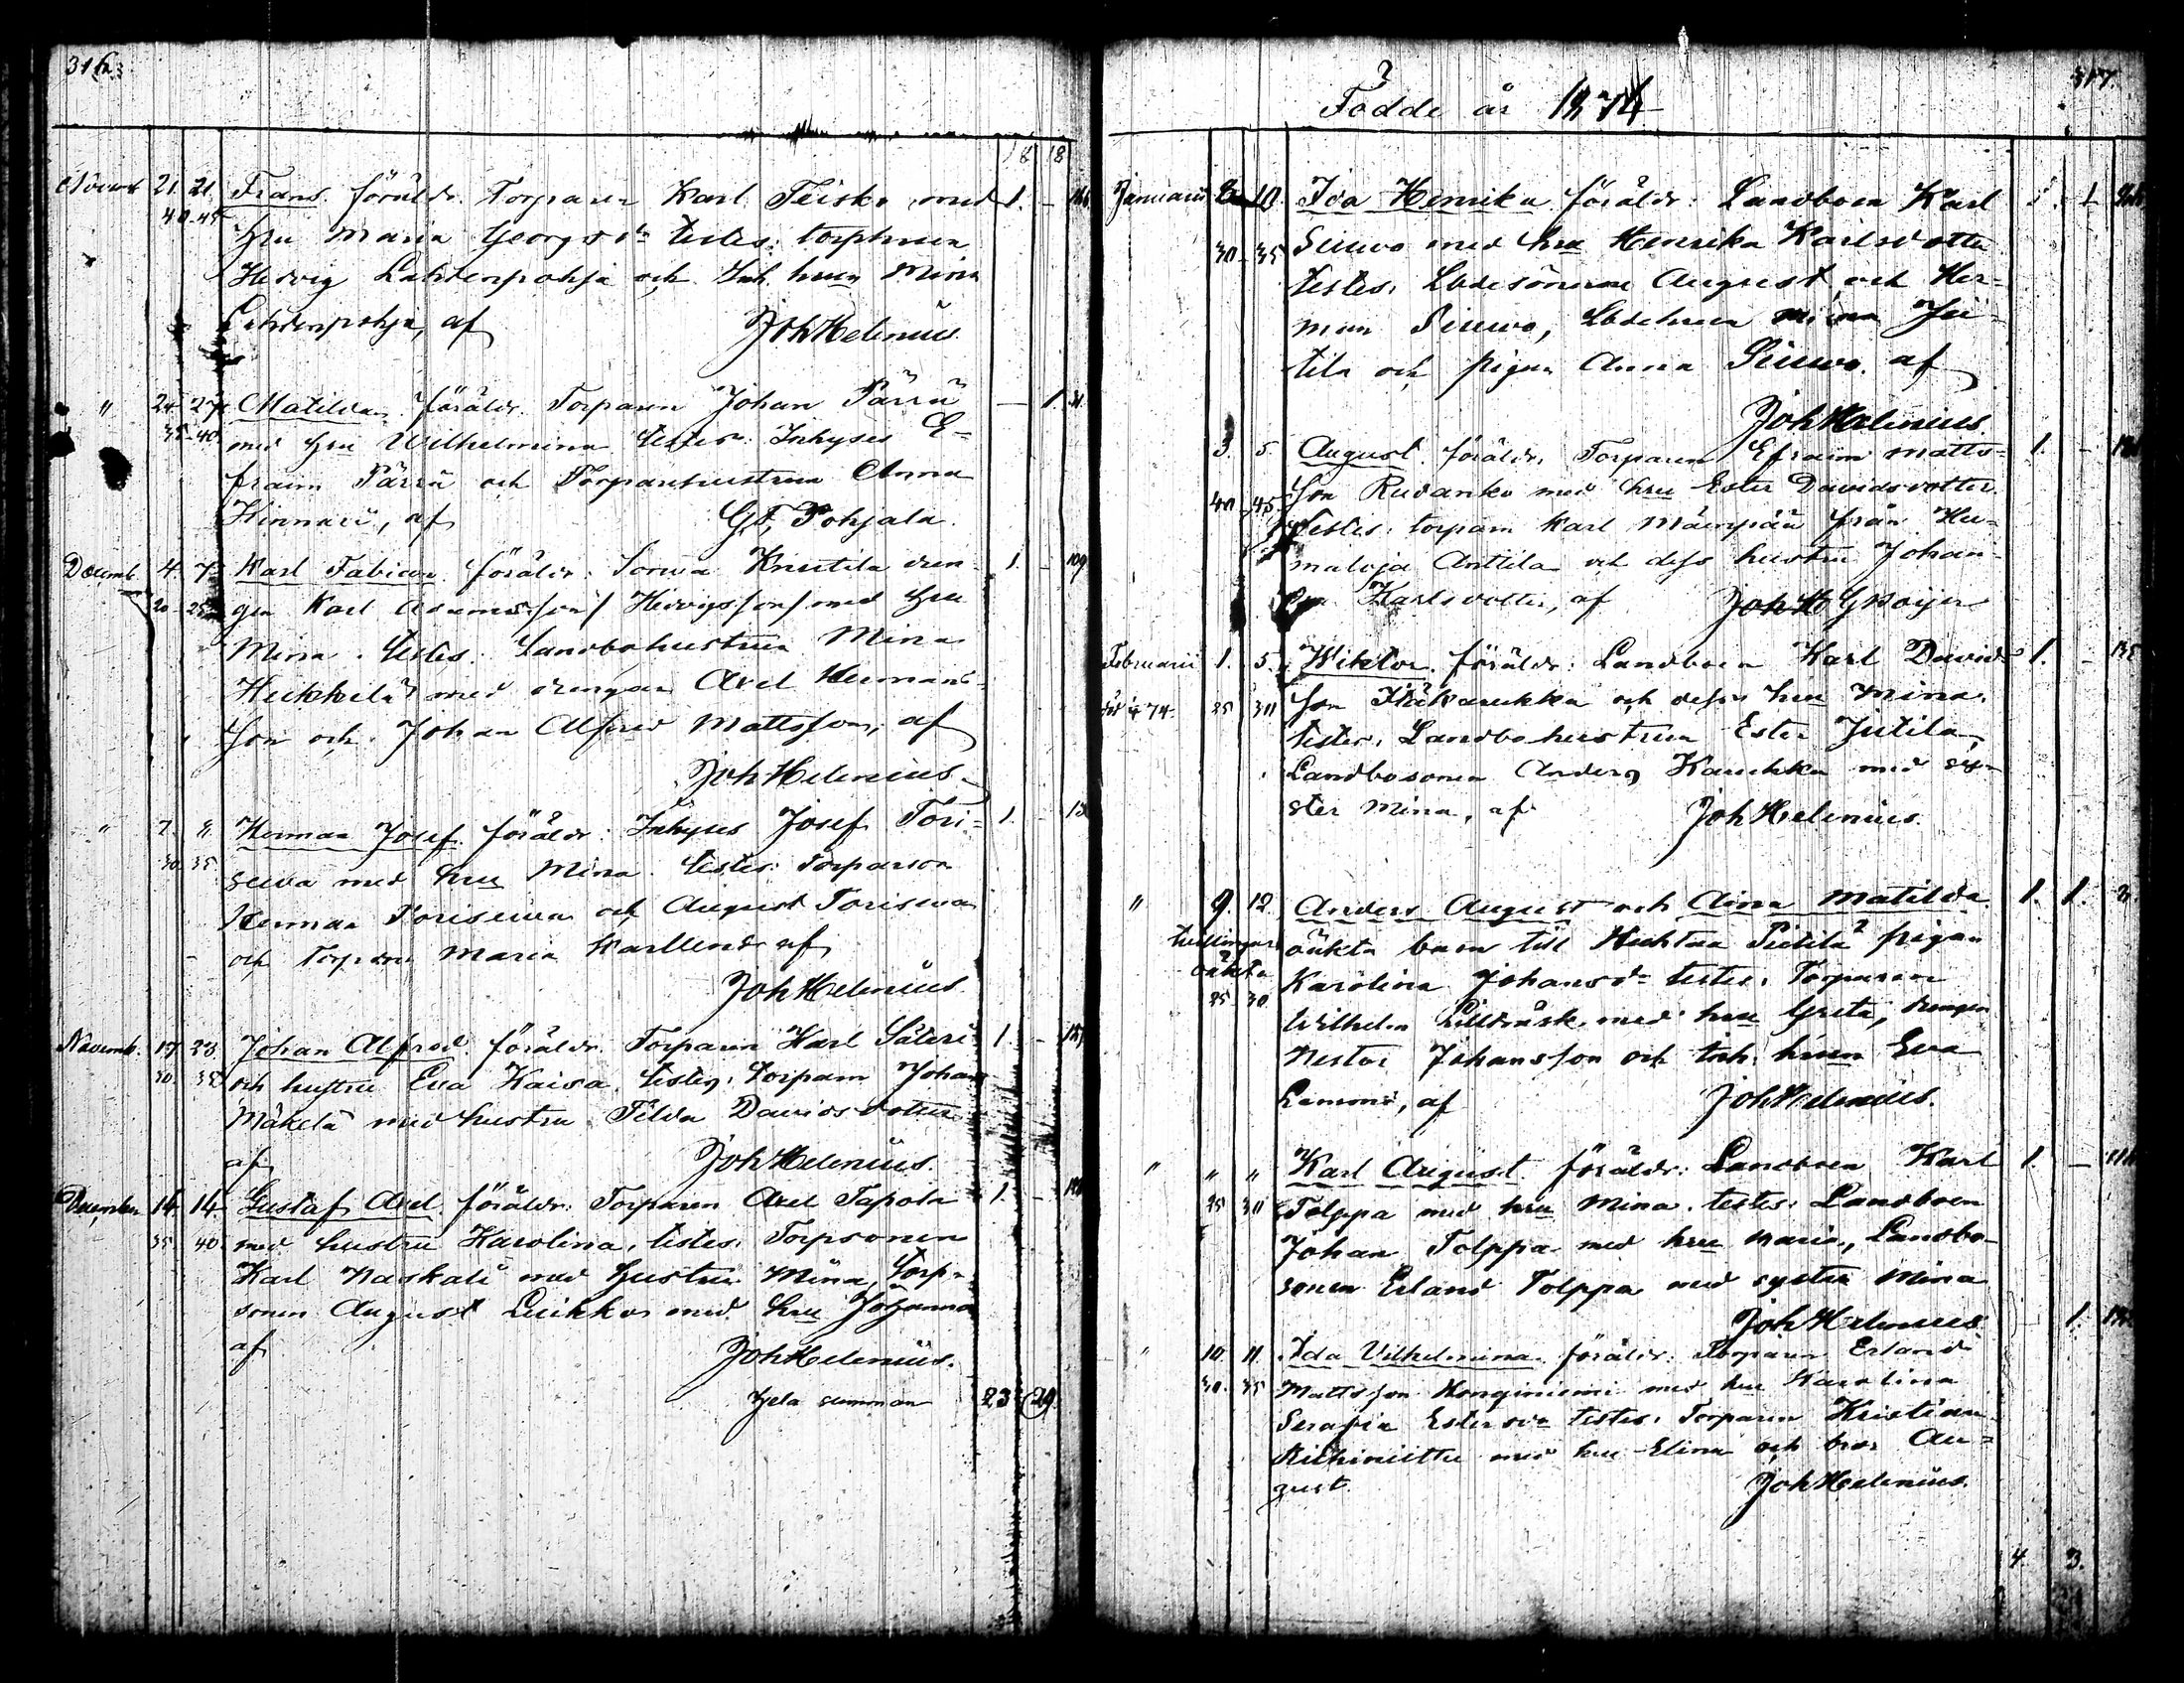 316
18 18
Novemb 21. 21. Frans. föräldr. Torparen Karl Teisko med 1. —
40-45 Hru Maria Georgsdr testes: torphrun
Hedvig Lahdenpohja och Inh. hrun Mina
Lahdenpohja, af JohHelenius.
" 24. 27. Matilda. föräldr. Torparen Johan Pärrü — 1. 31.
35-40 med Hru Wilhelmina testes: Inhyses E-
fraim Pärrü och Torparehustrun Anna
Hinnari, af Gst, Pohjala.
Decemb. 4. 7. Karl Fabian. föräldr: Sorwa Knuutila dren- 1. — 109
20-25 gen Karl Adamsson/Hedvigsson/ med Hru
Mina. testes. Landbohustrun Mina
Heikkilä med drengen Axel Hermans-
son och Johan Alfred Mattsson, af
JohHelenius.
" 7. ". Herman Josef. föräldr: Inhyses Josef Tori- 1. 13
30 35 seva med hru Mina. testes: torparson
Herman Toriseva och August Toriseva
och Maria Karllend af
JohHelenius.
Novemb. 17 23 Johan Alfred. föräldr. Torparen Karl Säteri 1. —
30. 35 och hustru Eva Kaisa. testes: torparn Johan
Mäkelä med hustru Tilda Davidsdotter
af JohHelenius.
December 14. 14. Gustaf Axel. föräldr: Torparen Axel Tapola 1. —
35 40 med hustru Karolina, testes: Torpsonen
Karl Naskali med Hustru Mina, torp-
sonen August Luikko med hru Johanna
af JohHelenius.
Hela summan 23 29.
317.
Födde år 1874
Januari 8 10. Ida Henrika. föräldr: Landboen Karl 1.
30-35 Siuwo med hru Henrika Karlsdotter
testes: Lbdesönerne August och Her-
man Siuwo, Lbdehrun Mina Jü-
tila och pigan Anna Siuwo. af
JohHelenius.
3. 5. August. föräldr. Torparen Efraim Matts- 1. —
40-45 son Rudanko med hru Ester Davidsdotter.
Testes: torparn Karl Mäenpää från Hu-
maloja Anttila och dess hustru Johan-
Karlsdotter, af
Februarii 1. 5. Wiktor. föräldr: Landboen Karl Davids- 1. — 135
74. 25 30 son Karukka och dess hru Mina.
testes: Landbohustrun Ester Jütila,
Landbosonen Anders Karukka med sy-
ster Mina, af JohHelenius.
" 9. 12 Anders August och Aina Matilda. 1. 1. 3.
tvillingar oäkta barn till Huhtaa Pietilä pigan
oäkta Karolina Johansdr testes: Torparen
25-30 Wilhelm Lillträsk med hru Greta, drengen
Nestor Johansson och Inh. hrun Eva
Lamoni, af JohHelenius.
" " " Karl August. föräldr: Landboen Karl 1. —
25 30 Tolppa med hru Mina. testes: Landboen
Johan Tolppa med hru Maria, Landbo-
sonen Erland Tolppa med syster Mina
JohHelenius. 1
" 10. 11. Ida Vilhelmina. föräldr: Torparen Erland
30. 35 Mattsson Honginiemi med hru Karolina
Serafia Estersdr testes: Torparen Kristian
Riihiniittu med hru Elina och bror Au-
gust. JohHelenius.
4. 3.